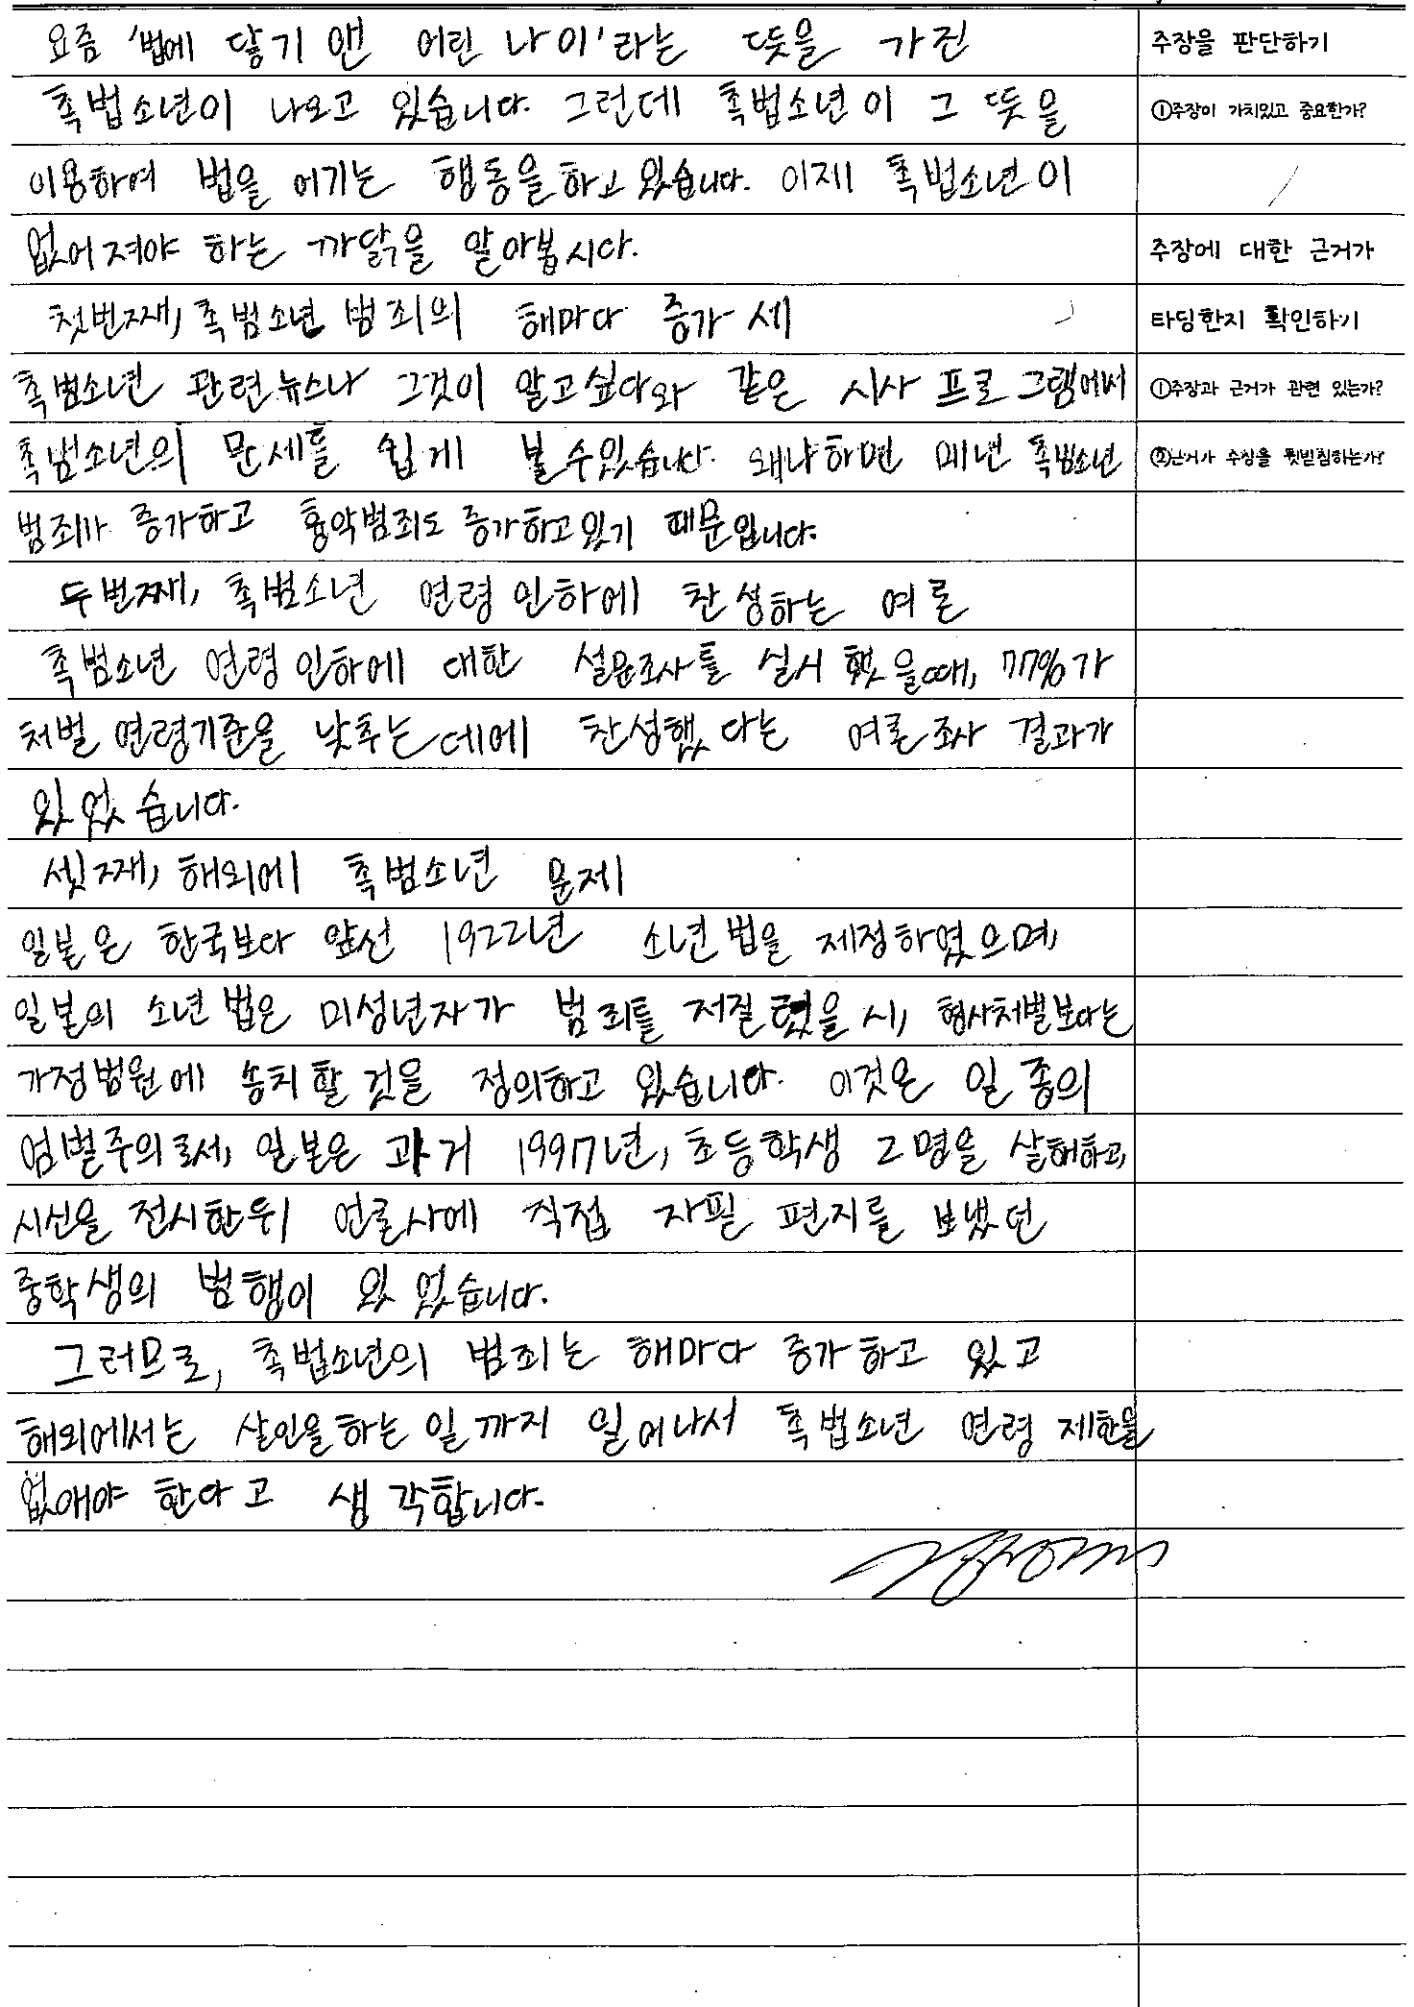 요즘 '법에 닿기 엔 어린 나이'라는 뜻을 가진
촉법소년이 나오고 있습니다. 그런데 촉법소년이 그 뜻을
이용하여 법을 어기는 행동을하고 있습니다. 이제 촉법소년이
없어져야 하는 까닭을 알아봅시다.
첫번째, 촉범소년 범죄의 해마다 증가세
촉범소년 관련뉴스나 그것이 알고싶다와 같은 시사 프로그램에서
촉범소년의 문세를 쉽게 볼수있습니다. 왜냐하면 매년 촉범소년
범죄가 증가하고 흉악범죄도 증가하고있기 때문입니다.
두번째, 촉범소년 연령인하에 찬성하는 여론
촉범소년 연령인하에 대한 설문조사를 실시 했을때, 77%가
처벌 연령기준을 낮추는데에 찬성했다는 여론조사 결과가
있었습니다.
셋째, 해외에 촉범소년 문제
일본은 한국보다 앞선 1922년 소년법을 제정하였으며,
일본의 소년법은 미성년자가 범죄를 저질렀을 시, 형사처벌보다는
가정법원에 송치할 것을 정의하고 있습니다. 이것은 일종의
엄벌주의로써, 일본은 과거 1997년, 초등학생 2명을 살해하고,
시신을 전시한뒤 언론사에 직접 자필 편지를 보냈던
중학생의 범행이 있었습니다.
그러므로, 촉법소년의 범죄는 해마다 증가하고 있고
해외에서는 살인을하는일까지 일어나서 촉법소년 연령 제한을
없애야 한다고 생각합니다.
주장을 판단하기
①주장이 가치있고 중요한가?
주장에 대한 근거가
타당한지 확인하기
①주장과 근거가 관련 있는가?
②근거가 주장을 뒷받침하는가?